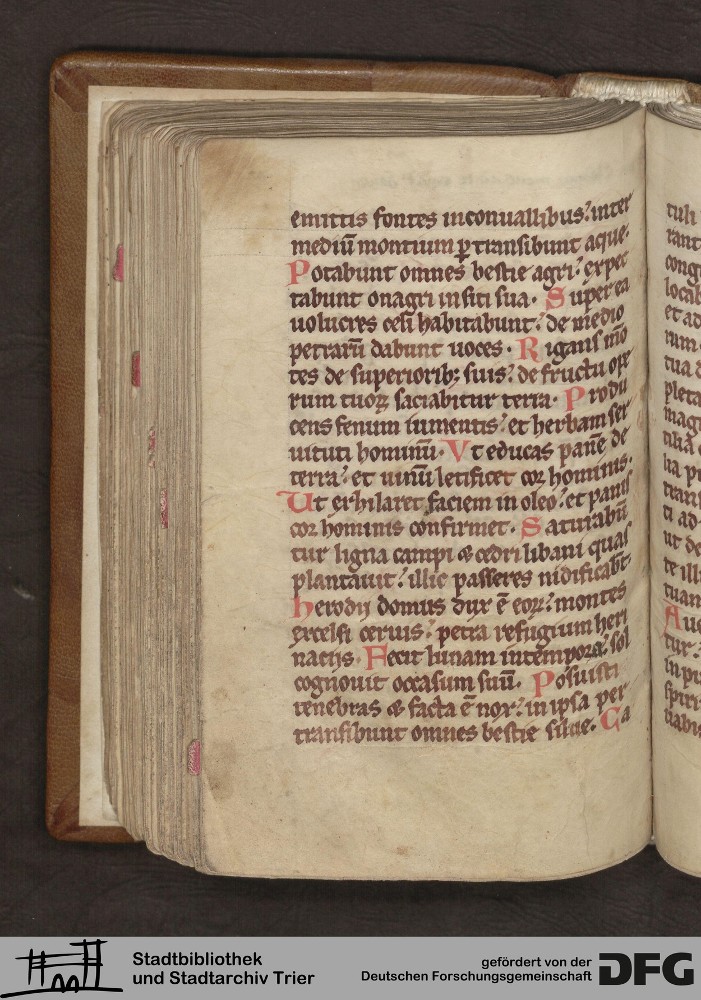 emittis fontes inconuallibus: inter
mediū montium ꝑtransibunt aque.
Potabunt omnes bestie agri: expec
tabunt onagri insiti sua. Super ea
uolucres celi habitabunt: de medio
petrarū dabunt uoces. Rigans mō
tes de superiorib; suis: de fructu ope
rum tuoꝝ saciabitur terra. Produ
cens fenum iumentis: et herbam ser
uituti hominū. Vt educas panē de
terra: et uinū letificet cor hominis.
Ut exhilaret faciem in oleo: et panis
cor hominis confirmet. Saturabū
tur ligna campi & cedri libani quas
plantauit: illic passeres nidificabt̄.
herodij domus dux ē eoꝝ: montes
excelsi ceruis: petra refugium heri
naciis. Fecit lunam intempora: sol
cognouit occasum suū. Posuisti
tenebras & facta ē nox: in ipsa per
transibunt omnes bestie silue. Ca
tuli
rant
cong
locab
et ad
rum
tua d
pleta
mag
tran
ti ad
ut de
te illi
tuam
Aue
tur:
in pu
spiri
Stadtbibliothek
und Stadtarchiv Trier
gefördert von der
Deutschen Forschungsgemeinschaft
DFG